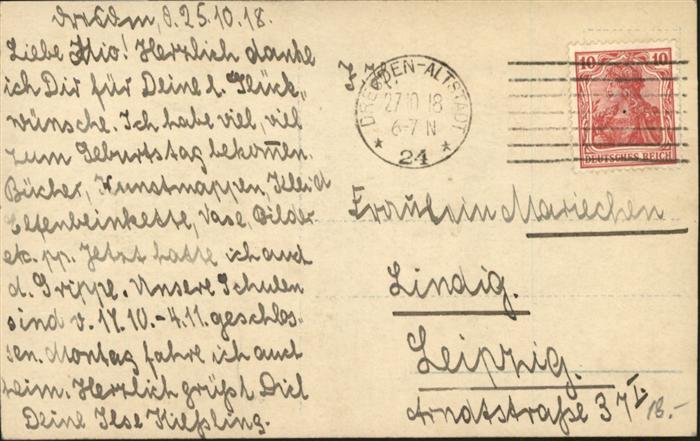 Dresden, d. 25.10.18.
Liebe Mio! Herzlich danke
ich Dir für Deine l. Glück„
wünsche. Ich habe viel, viel
zum Geburtstag bekom̅en.
Bücher, Kunstmappen, Kleid
Elfenbeinkette, Vase, Bilder
etc. pp. Jetzt hatte ich auch
d. Grippe. Unsere Schulen
sind v. 17.10.-4.11. geschlos-
sen. Montag fahre ich auch
heim. Herzlich grüßt Dich
Deine Ilse Kießling.
DRESDEN-ALTSTADT
27 10 18
6-7 N
* 24 *
10 10
DEUTSCHES REICH
Fräulein Mariechen
Lindig.
Leipzig.
Arndtstraße 37 I.
18.-